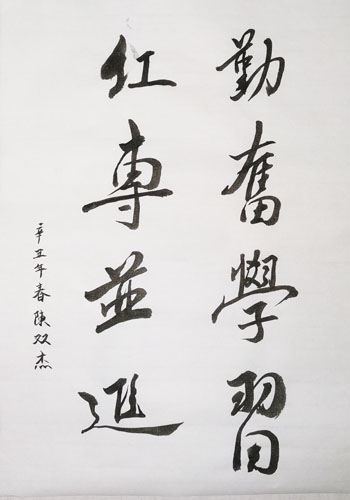 勤奮學習
紅專並進
辛丑年春陳双杰